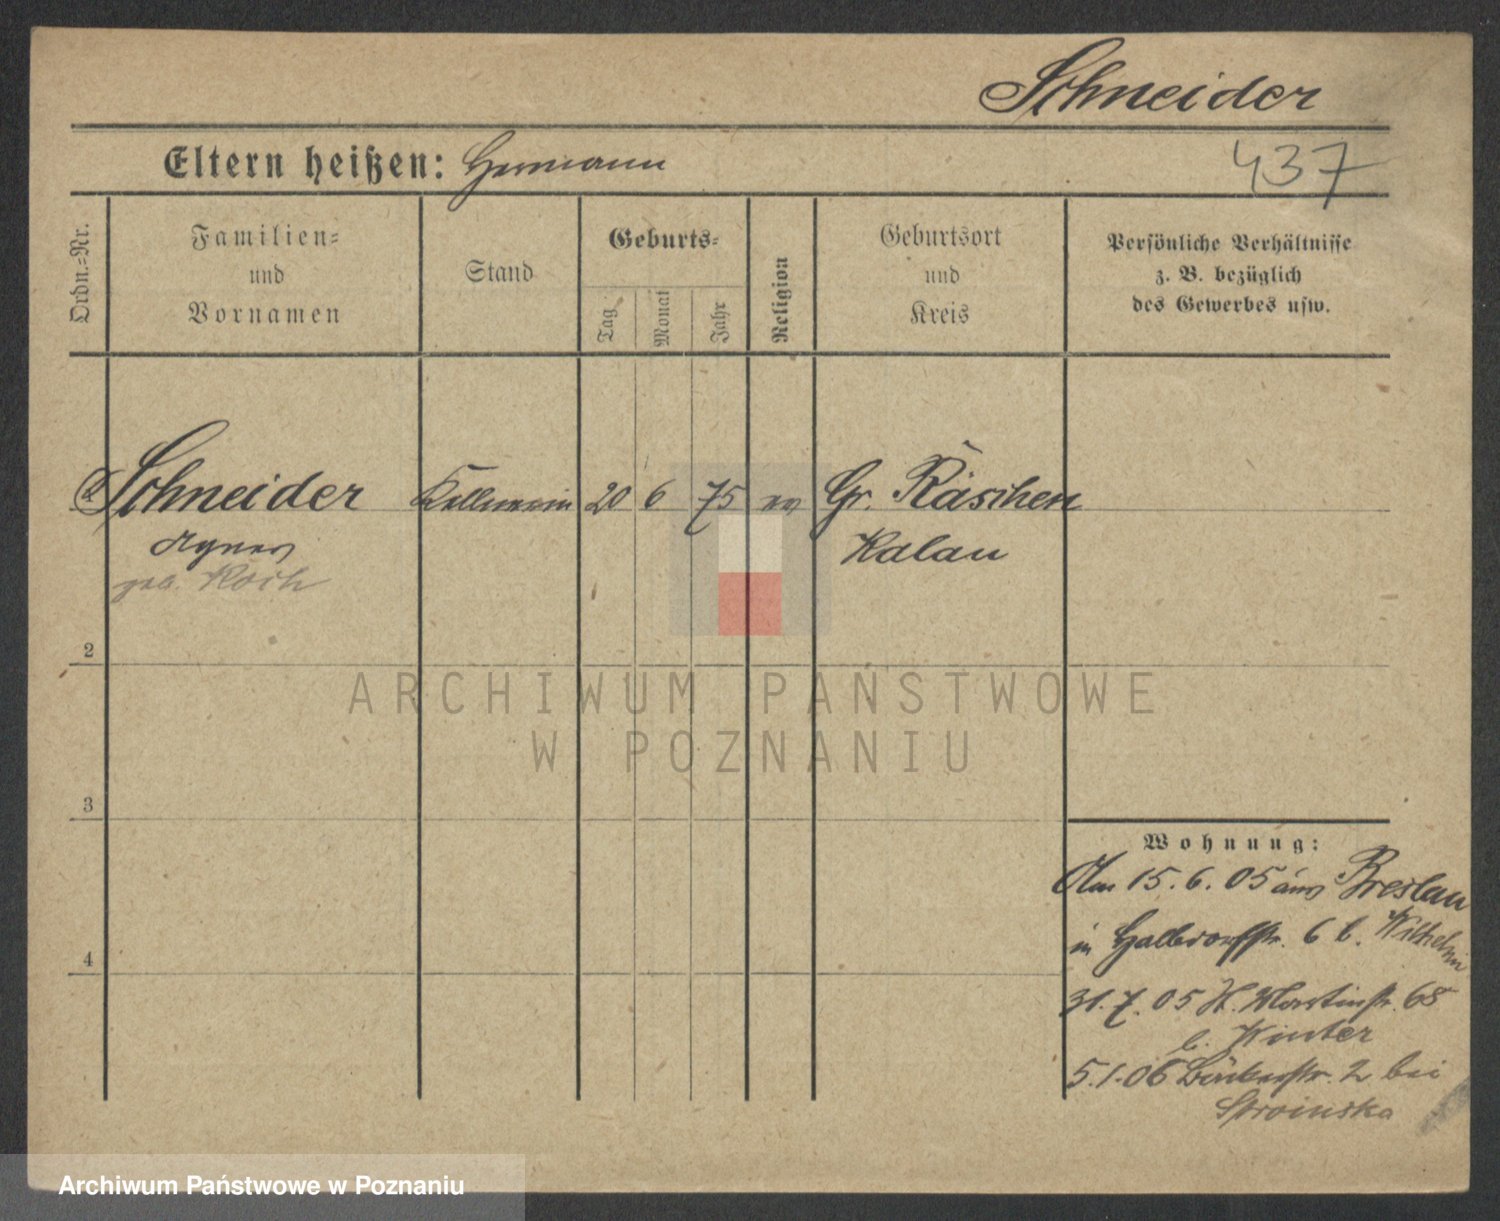 Schneider
Eltern heißen: Hermann
437
Ordn.-Nr.
Familien-
und
Vornamen
Stand
Geburts-
Tag
Monat
Jahr
Religion
Geburtsort
und
Kreis
Persönliche Verhältnisse
z. B. bezüglich
des Gewerbes usw.
Schneider Kellnerin 20 6 75 ev Gr. Räschen
Agnes Kalau
geb. Koch
2
3
4
Wohnung:
Am 15.6.05 aus Breslau
in Halbdorfstr. 6 b. Wilhelm
31.7.05 St. Martinstr. 68
b. Winter
5.1.06 Bäckerstr. 2 bei
Stroinska
ARCHIWUM PAŃSTWOWE
W POZNANIU
Archiwum Państwowe w Poznaniu